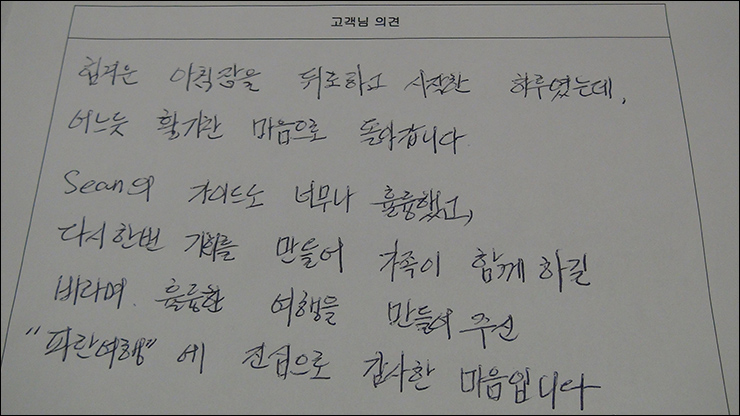 고객님 의견
힘겨운 아침잠을 뒤로하고 시작한 하루였는데,
어느듯 활기찬 마음으로 돌아갑니다
Sean의 가이드도 너무나 훌륭했고,
다시한번 기회를 만들어 가족이 함께 하길
바라며 훌륭한 여행을 만들어 주신
"파란여행" 에 진심으로 감사한 마음입니다